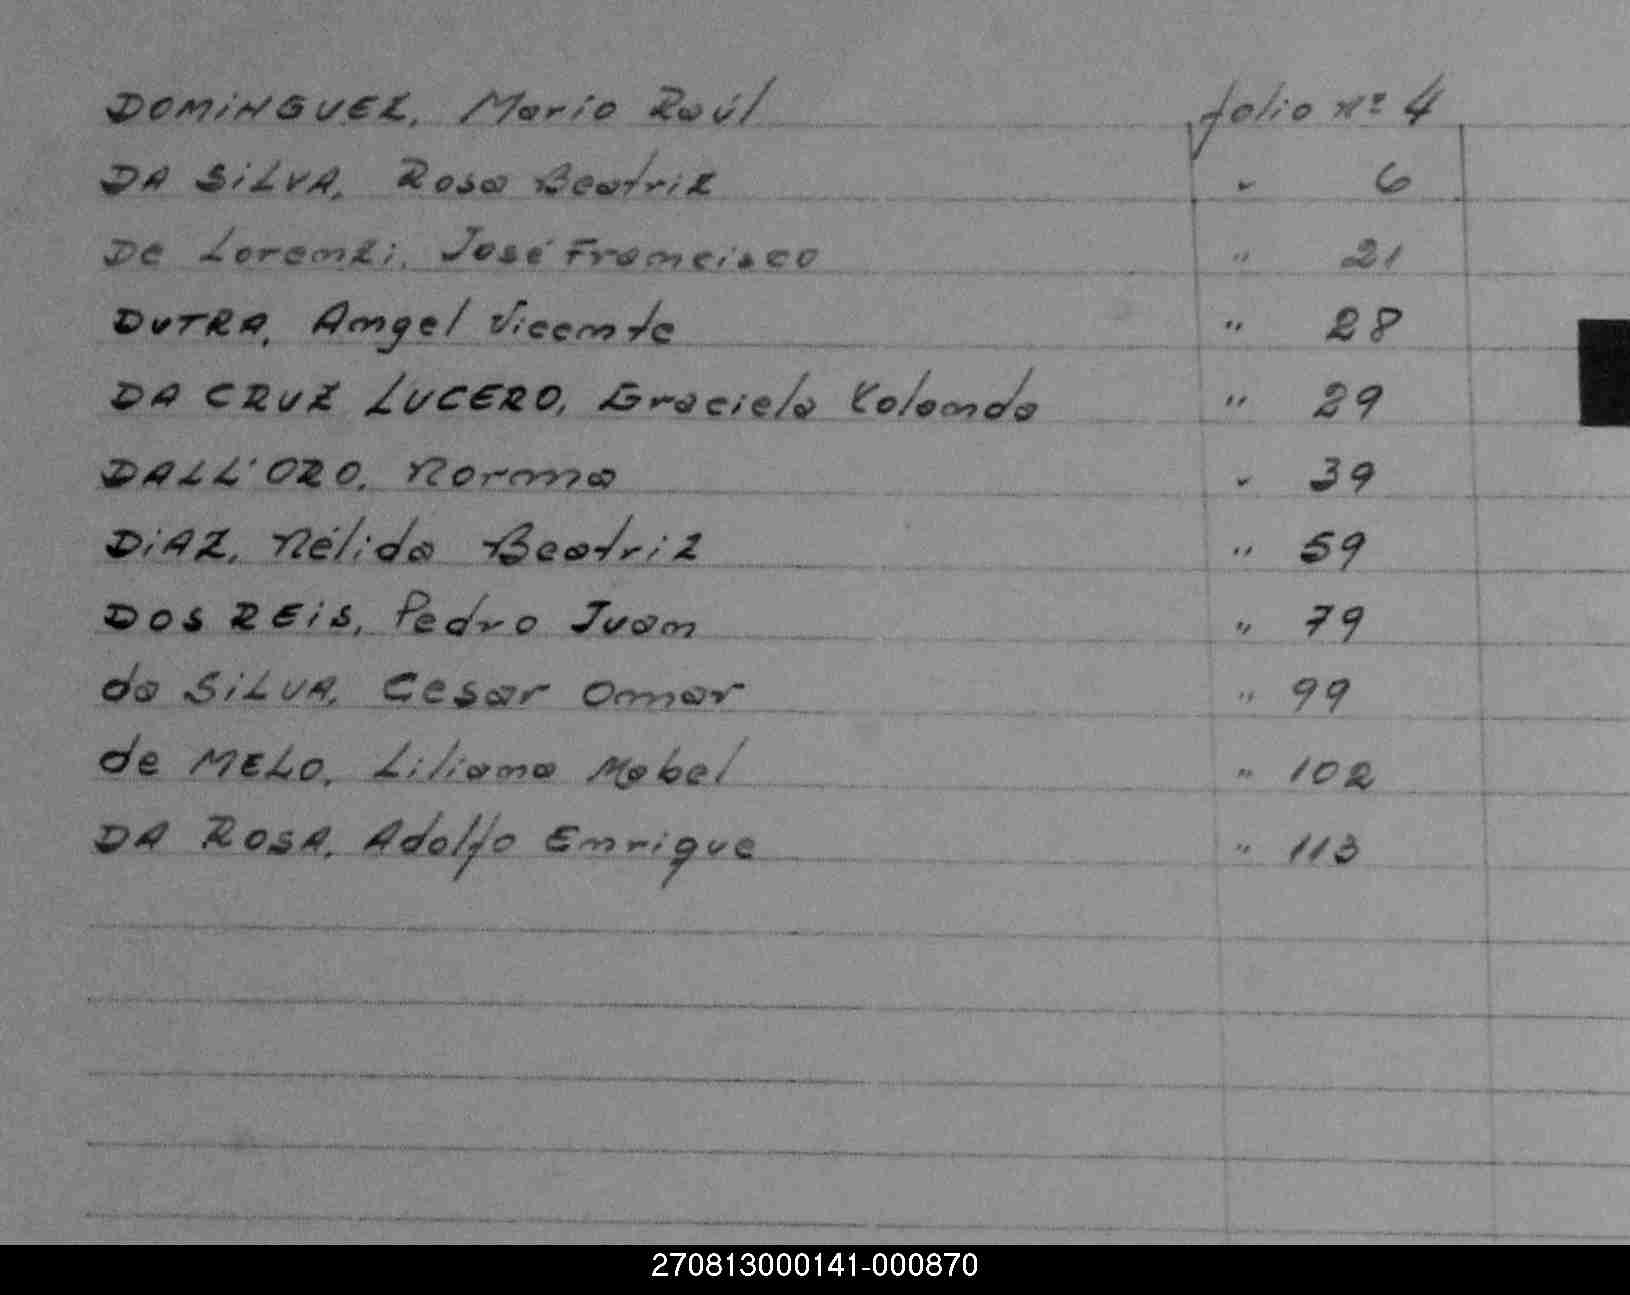 DOMINGUEZ, Mario Raúl folio nº 4
DA SILVA, Rosa Beatriz " 6
De Lorenzi, José Francisco " 21
DUTRA, Angel Vicente " 28
DA CRUZ LUCERO, Graciela Yolanda " 29
DALL'ORO, Norma " 39
DIAZ, Nélida Beatriz " 59
DOS REIS, Pedro Juan " 79
da SILVA, Cesar Omar " 99
de MELO, Liliana Mabel " 102
DA ROSA, Adolfo Enrique " 113
270813000141-000870